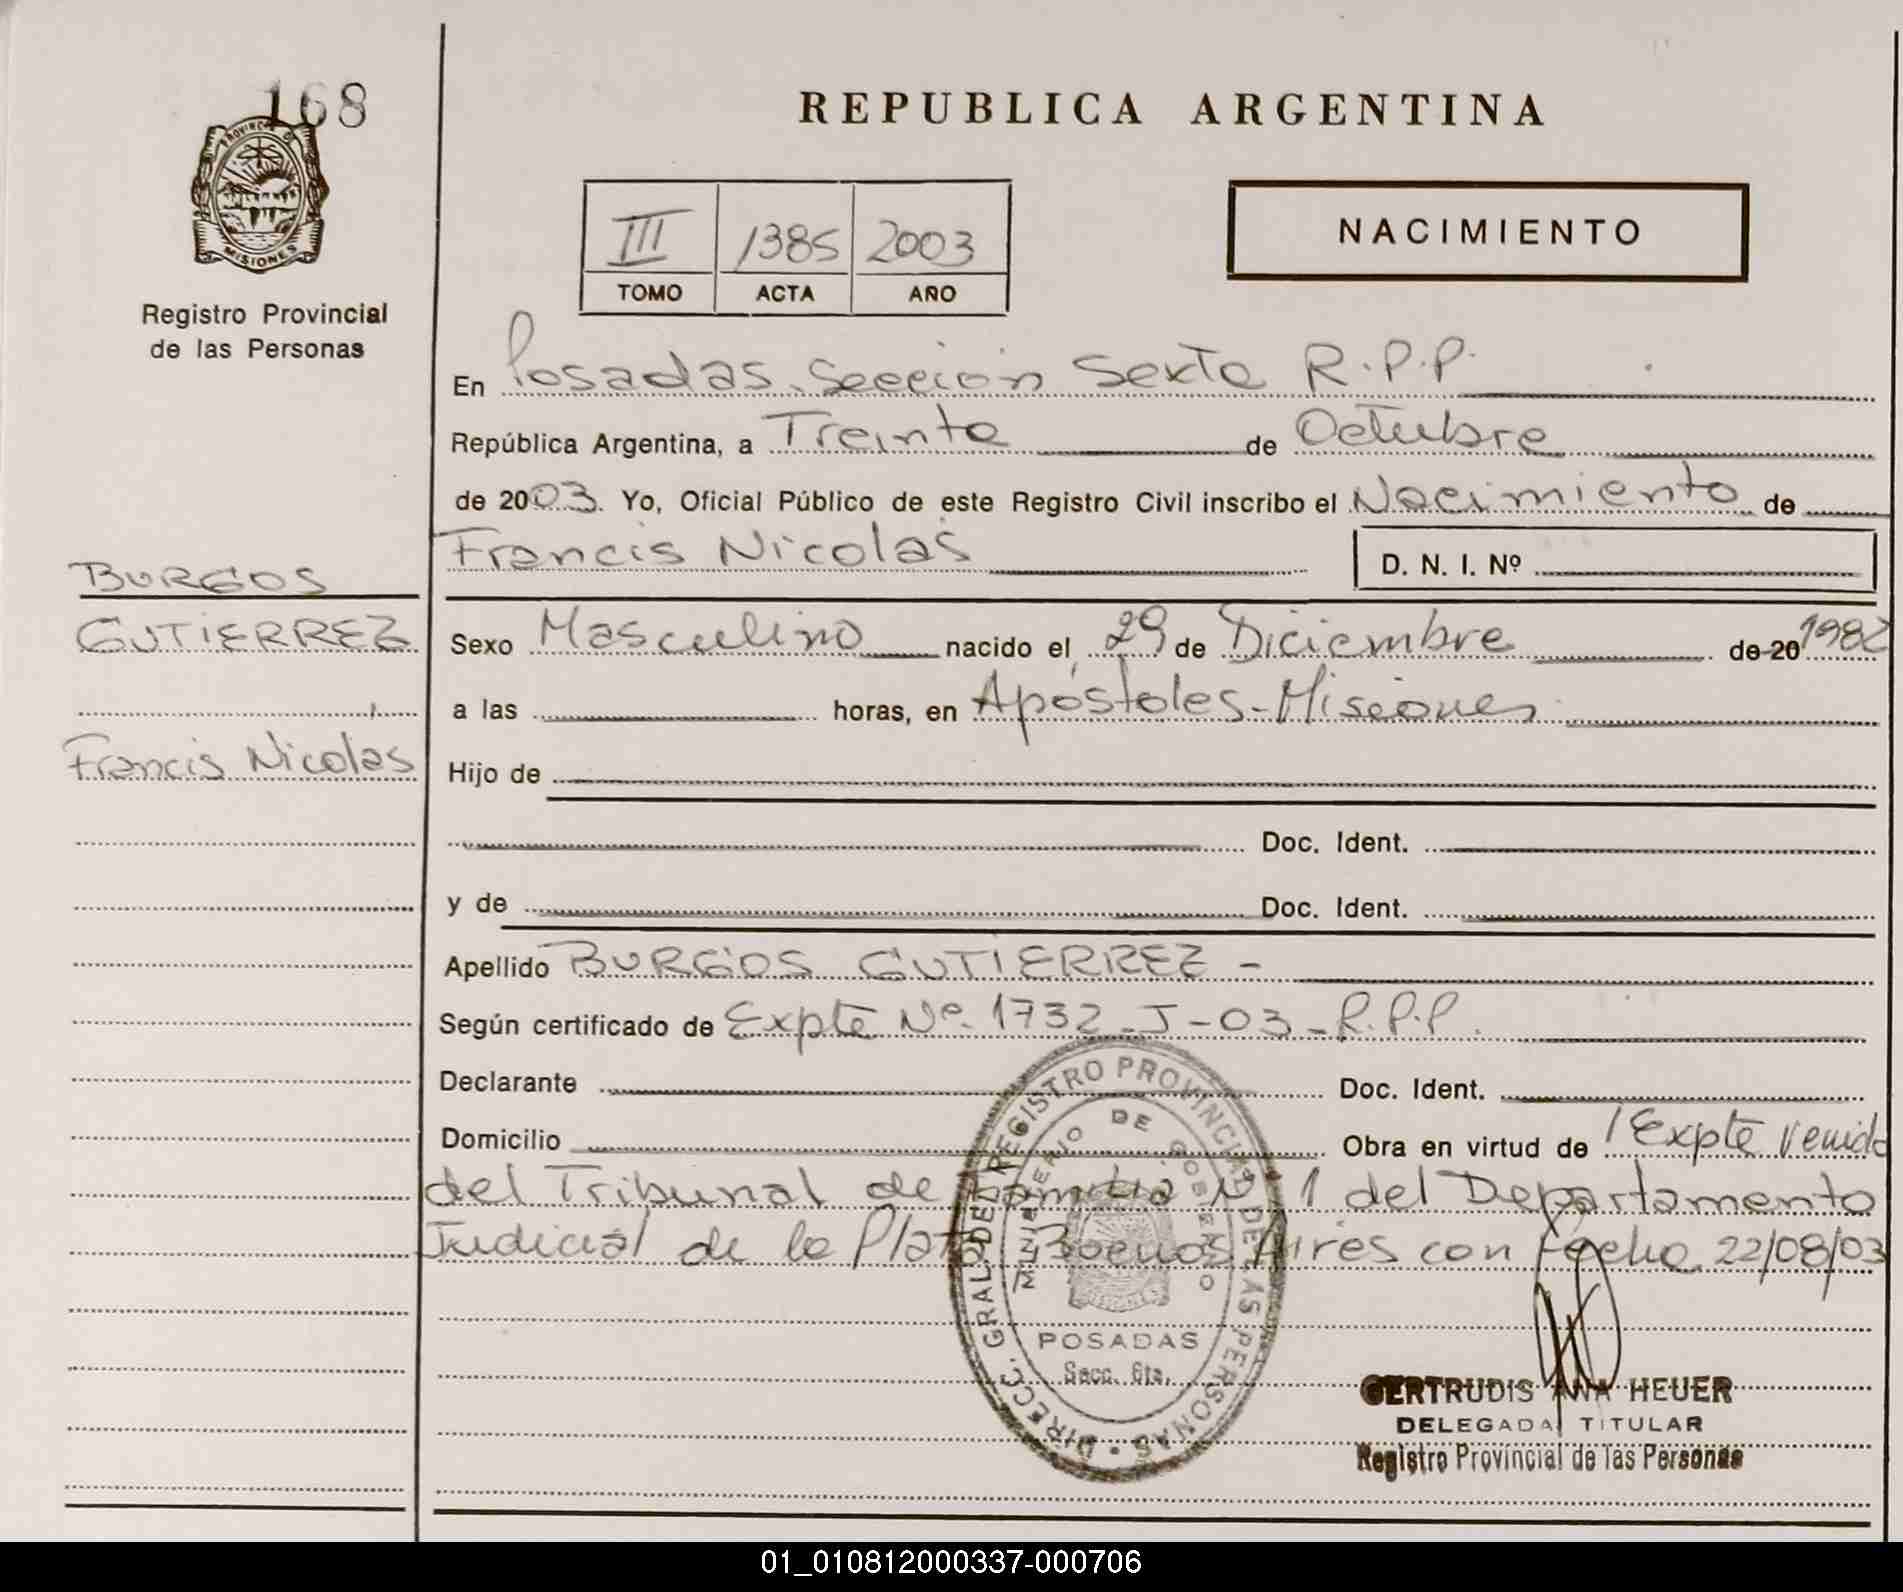 168
PROVINCIA DE
MISIONES
Registro Provincial
de las Personas
BURGOS
GUTIERREZ
Francis Nicolas
REPUBLICA ARGENTINA
III 1385 2003
TOMO ACTA AÑO
NACIMIENTO
En Posadas. Sección Sexta R.P.P.
República Argentina, a Treinta de Octubre
de 2003. Yo, Oficial Público de este Registro Civil inscribo el Nacimiento de
Francis Nicolas D. N. I. Nº
Sexo Masculino nacido el 29 de Diciembre de 20 1982
a las horas, en Apóstoles-Misiones
Hijo de
Doc. Ident.
y de Doc. Ident.
Apellido BURGOS GUTIERREZ -
Según certificado de Expte Nº 1732-J-03-R.P.P.
Declarante Doc. Ident.
Domicilio Obra en virtud de Expte venido
del Tribunal de Familia Nº 1 del Departamento
Judicial de la Plata Buenos Aires con fecha 22/08/03
DIRECC. GRAL. DEL REGISTRO PROVINCIAL DE LAS PERSONAS
MINISTERIO DE GOBIERNO
POSADAS
Secc. 6ta.
GERTRUDIS ANA HEUER
DELEGADA TITULAR
Registro Provincial de las Personas
01_010812000337-000706